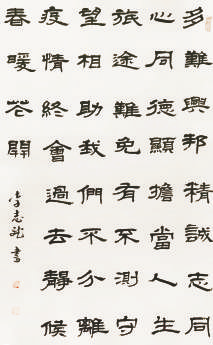 多難興邦精誠志同
心同德顯擔當人生
旅途難免有不測守
望相助我們不分離
疫情終會過去靜候
春暖花開
李志龍書